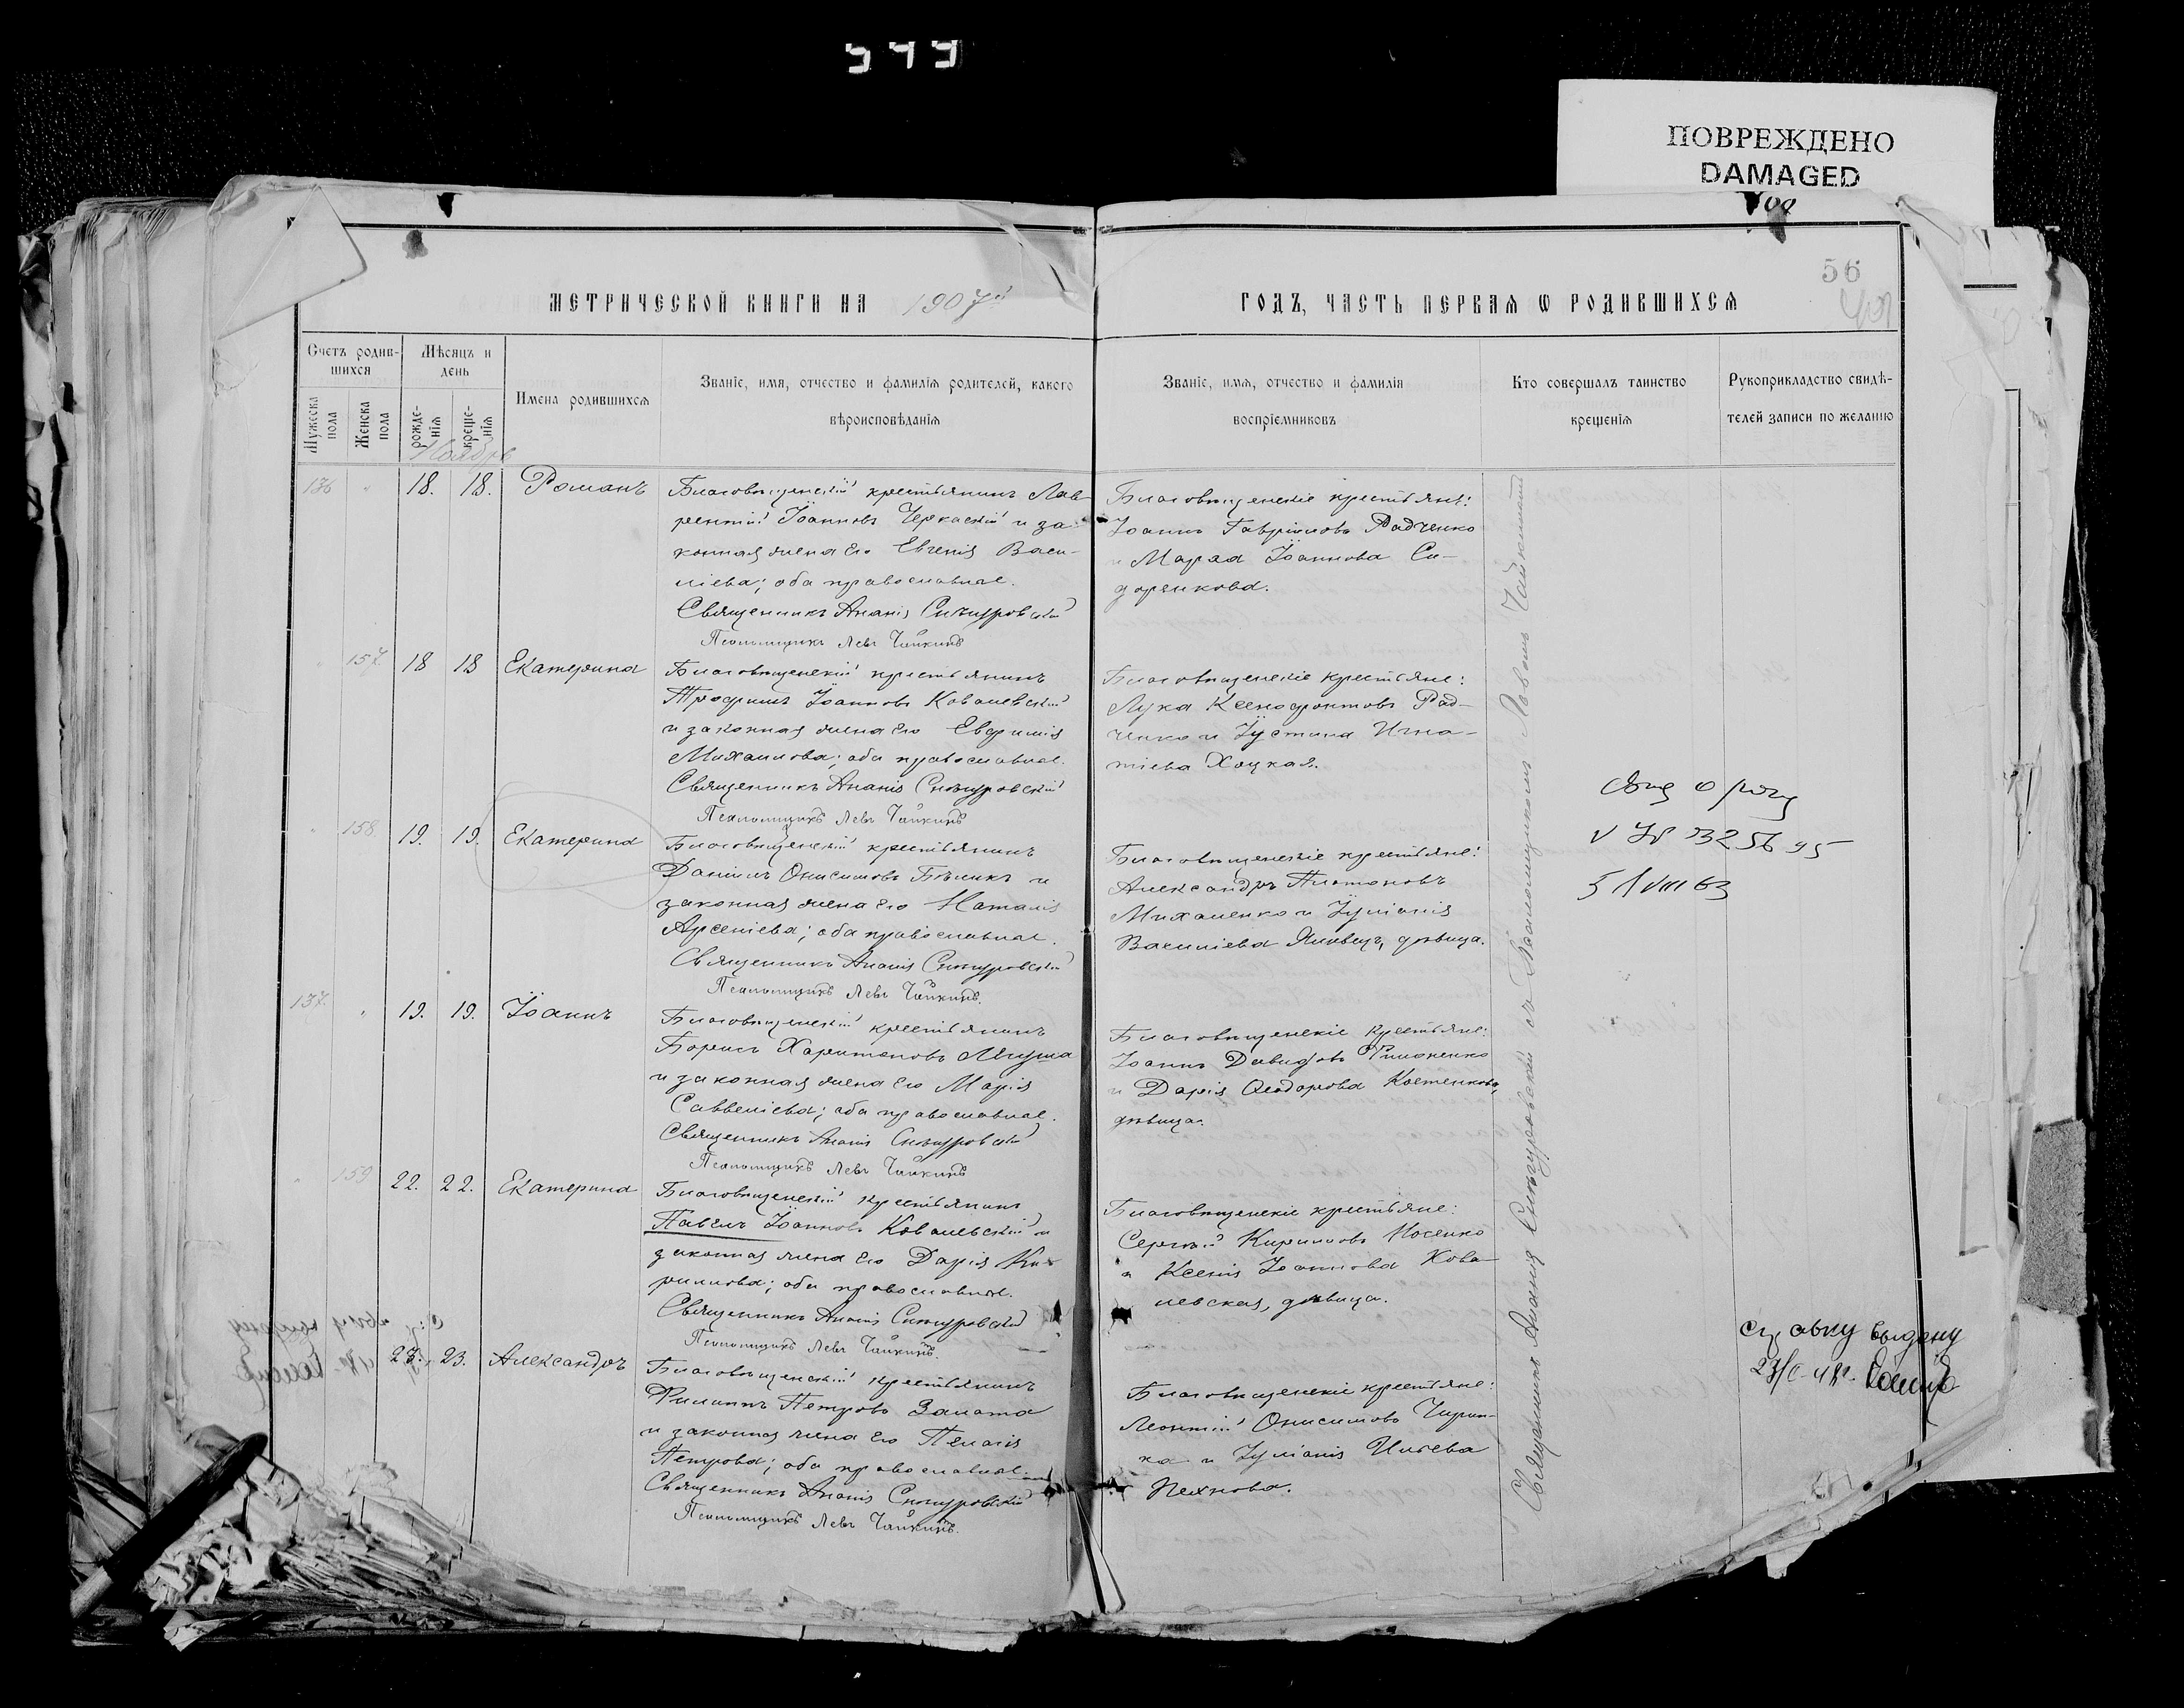 ПОВРЕЖДЕНО
DAMAGED
56
МЕТРИЧЕСКОЙ КНИГИ НА 1907й
ГОДЪ, ЧАСТЬ ПЕРВАЯ Ѡ РОДИВШИХСЯ
Счетъ родив-
шихся
Мужеска пола
Женска пола
Мѣсяцъ и
день
рожде-
нія
креще-
нія
Имена родившихся
Званіе, имя, отчество и фамилія родителей, какого
вѣроисповѣданія
Званіе, имя, отчество и фамилія
воспріемниковъ
Кто совершалъ таинство
крещенія
Рукоприкладство свидѣ-
телей записи по желанію
Ноябрь
136 " 18. 18. Романъ
Благовѣщенскій крестьянинъ Лав-
рентій Іоанновъ Черкаскій и за-
конная жена его Евгенія Васи-
ліева; оба православные.
Священникъ Ананія Снѣгуровскій
Псаломщикъ Левъ Чайкинъ
Благовѣщенскіе крестьяне:
Іоаннъ Гавріиловъ Радченко
и Марѳа Іоаннова Си-
доренкова.
" 157. 18 18 Екатерина
Благовѣщенскій крестьянинъ
Трофимъ Іоанновъ Ковалевскій
и законная жена его Евфимія
Михаилова; оба православные.
Священникъ Ананія Снѣгуровскій
Псаломщикъ Левъ Чайкинъ
Благовѣщенскіе крестьяне:
Лука Ксенофонтовъ Рад-
ченко и Іустина Игна-
тіева Хоцкая.
" 158. 19. 19. Екатерина
Благовѣщенскій крестьянинъ
Даніилъ Онисимовъ Бѣликъ и
законная жена его Наталія
Арсеніева; оба православные.
Священникъ Ананія Снѣгуровскій
Псаломщикъ Левъ Чайкинъ.
Благовѣщенскіе крестьяне:
Александръ Платоновъ
Михаленко и Іуліанія
Василіева дѣвица.
137. " 19. 19. Іоаннъ
Благовѣщенскій крестьянинъ
Борисъ Харитоновъ
и законная жена его Марія
Савваліева; оба православные.
Священникъ Ананія Снѣгуровскій
Псаломщикъ Левъ Чайкинъ
Благовѣщенскіе крестьяне:
Іоаннъ Давидовъ
и Дарія Ѳеодорова Костенкова,
дѣвица.
" 159 22. 22. Екатерина
Благовѣщенскій крестьянинъ
Павелъ Іоанновъ Ковалевскій и
законная жена его Дарія Ки-
риллова; оба православные.
Священникъ Ананія Снѣгуровскій
Псаломщикъ Левъ Чайкинъ.
Благовѣщенскіе крестьяне:
Сергѣй Кирилловъ Носенко
и Ксенія Іоаннова Кова-
левская, дѣвица.
23. 23. Александръ
Благовѣщенскій крестьянинъ
Филиппъ Петровъ Залата
и законная жена его Пелагія
Петрова; оба православные.
Священникъ Ананія Снѣгуровскій
Псаломщикъ Левъ Чайкинъ.
Благовѣщенскіе крестьяне:
Леонтій Онисимовъ Чирин-
ка и Іуліанія Ильева
Священникъ Ананія Снѣгуровскій съ Псаломщикомъ Львомъ Чайкинымъ